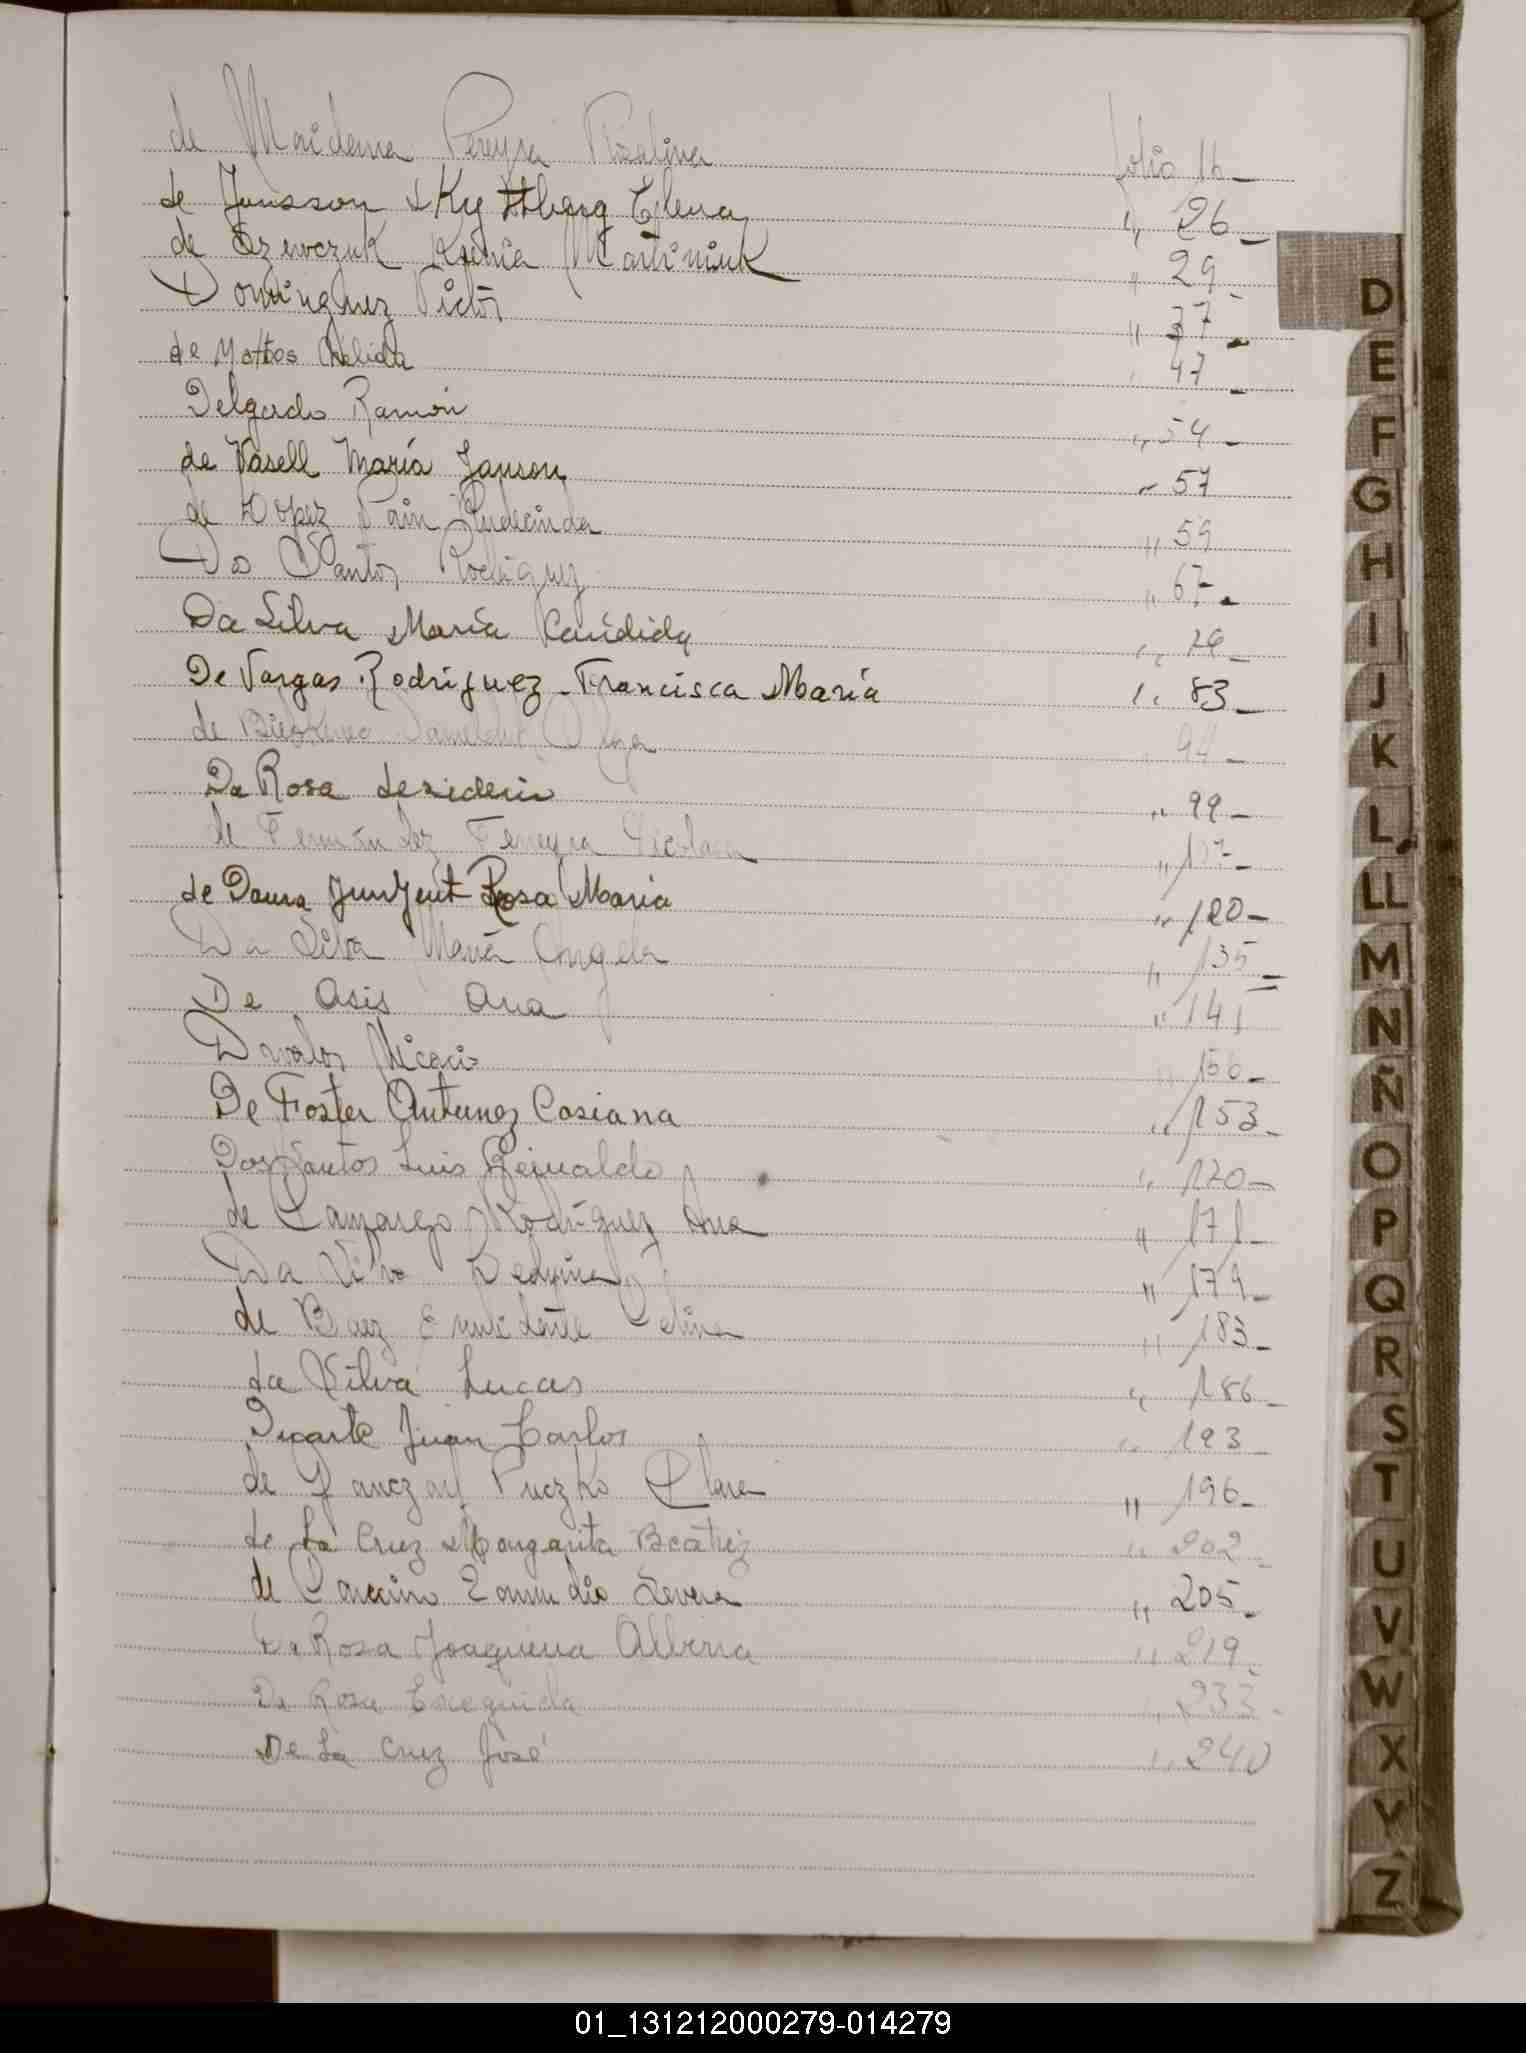 de Maidana Pereyra Rosalina folio 16 -
de Jansson Elena " 26 -
de Szewczuk Ksenia Martiniuk " 29 -
Dominguez Victor " 37 -
de Mattos Delida 47 -
Delgado Ramón " 54 -
de Vasell María Janson " 57
de Lopez Pain Rudecinda " 59
Dos Santos Rodriguez " 67 -
Da Silva María Candida "
De Vargas Rodriguez Francisca María " 83 -
de Olga 94 -
Da Rosa desiderio " 99 -
de Fernández Ferreyra " 117 -
de Daura Junyent Rosa Maria " 120 -
Da Silva María Angela " 135 =
De Asis Ana " 141
Davalos Nicacio "
De Foster Antunez Casiana " 153 -
Dos Santos Luis Reinaldo " 170 -
de Camargo Rodriguez Ana " 171 -
Da Silva " 179 -
de Baez Celina " 183 -
da Silva Lucas " 186 -
Duarte Juan Carlos " 193 -
de Puczko Clara " 196 -
de La Cruz Margarita Beatriz " 202 -
de Severa " 205 -
Da Rosa Joaquina Albina " 219 -
Da Rosa Exequida " 233 -
De La Cruz José " 240
D
E
F
G
H
I
J
K
L
LL
M
N
Ñ
O
P
Q
R
S
T
U
V
W
X
Y
Z
01_131212000279-014279